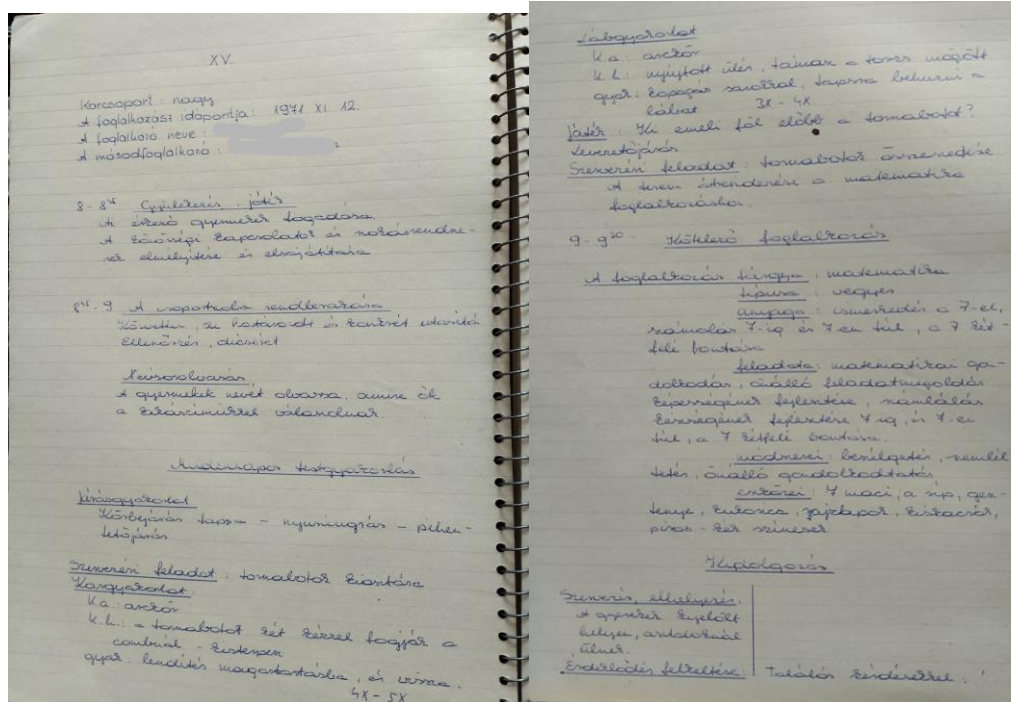 XV.
Korcsoport: nagy
A foglalkozás időpontja: 1971 XI. 12.
A foglalkozó neve:
A másodfoglalkozó:
8 - 8⁴⁵ Gyülekezés, játék
Az érkező gyermekek fogadása.
A közösségi kapcsolatok és
elmélyítése és elsajátítása
8⁴⁵ - 9 A csoportszoba rendberakása
Közvetlen, de határozott és konkrét utasítás
Ellenőrzés, dicséret
Névsorolvasás
A gyermekek nevét olvassa, amire ők
a válaszolnak.
Mindennapos testgyakorlás
Járásgyakorlat
Körbejárás tapsra - nyusziugrás - pihen-
tetőjárás
Szervezési feladat: tornabotok kiosztása
Kargyakorlat:
K.a.: arckör
K.h.: a tornabotot két kézzel fogják a
combnál
gyak. lendítés magastartásba, és vissza.
4X - 5X
Lábgyakorlat
K.a.: arckör
K.h.: nyújtott ülés, támasz a törzs mögött
gyak: kopogás sarokkal, tapsra behúzni a
lábat 3X - 4X
Játék: Ki emeli föl előbb a tornabotot?
Levezetőjárás
Szervezési feladat: tornabotok összeszedése
A terem átrendezése a matematika
foglalkozáshoz.
9 - 9³⁰ Kötelező foglalkozás
A foglalkozás tárgya: matematika
típusa: vegyes
anyaga: ismerkedés a 7-el,
számolás 7-ig és 7-en túl, a 7 két-
felé bontása
feladata: matematikai go-
dolkodás, önálló feladatmegoldás
képességének fejlesztése, számlálás
készségének fejlesztése 7-ig, és 7-en
túl, a 7 kétfelé bontása.
módszerei: beszélgetés, szemlél
tetés, önálló gondolkodtatás
eszközei: 7 maci, a síp, gesz-
tenye, kukorica, rajzlapok, kiskacsák,
piros - kék színesek
Kidolgozás
Szervezés, elhelyezés.
A gyerekek kijelölt
helyen, asztaloknál
ülnek.
Érdeklődés felkeltése: Találós kérdésekkel: